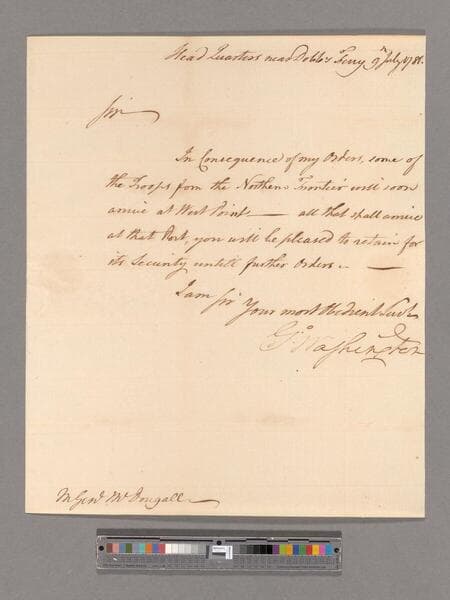 Head Quarters near Dobb's Ferry 9th July 1781.
Sir
In Consequence of my Orders, some of
the Troops from the Northern Frontier will soon
arrive at West Point — all that shall arrive
at that Post, you will be pleased to retain for
its Security untill further Orders. —
I am Sir Your most Obedient Servt
Go Washington
M Genl McDougall